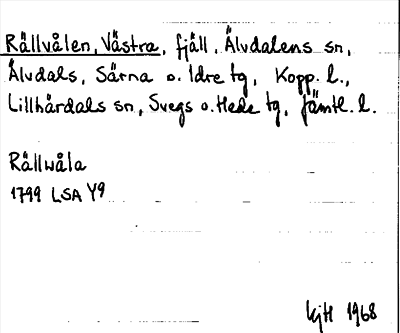 Rällvålen, Västra, fjäll, Älvdalens sn,
Älvdals, Särna o. Idre tg, Kopp. l.,
Lillhärdals sn, Svegs o. Hede tg, Jämtl. l.
Rällwåla
1799 LSA Y9
KjH 1968